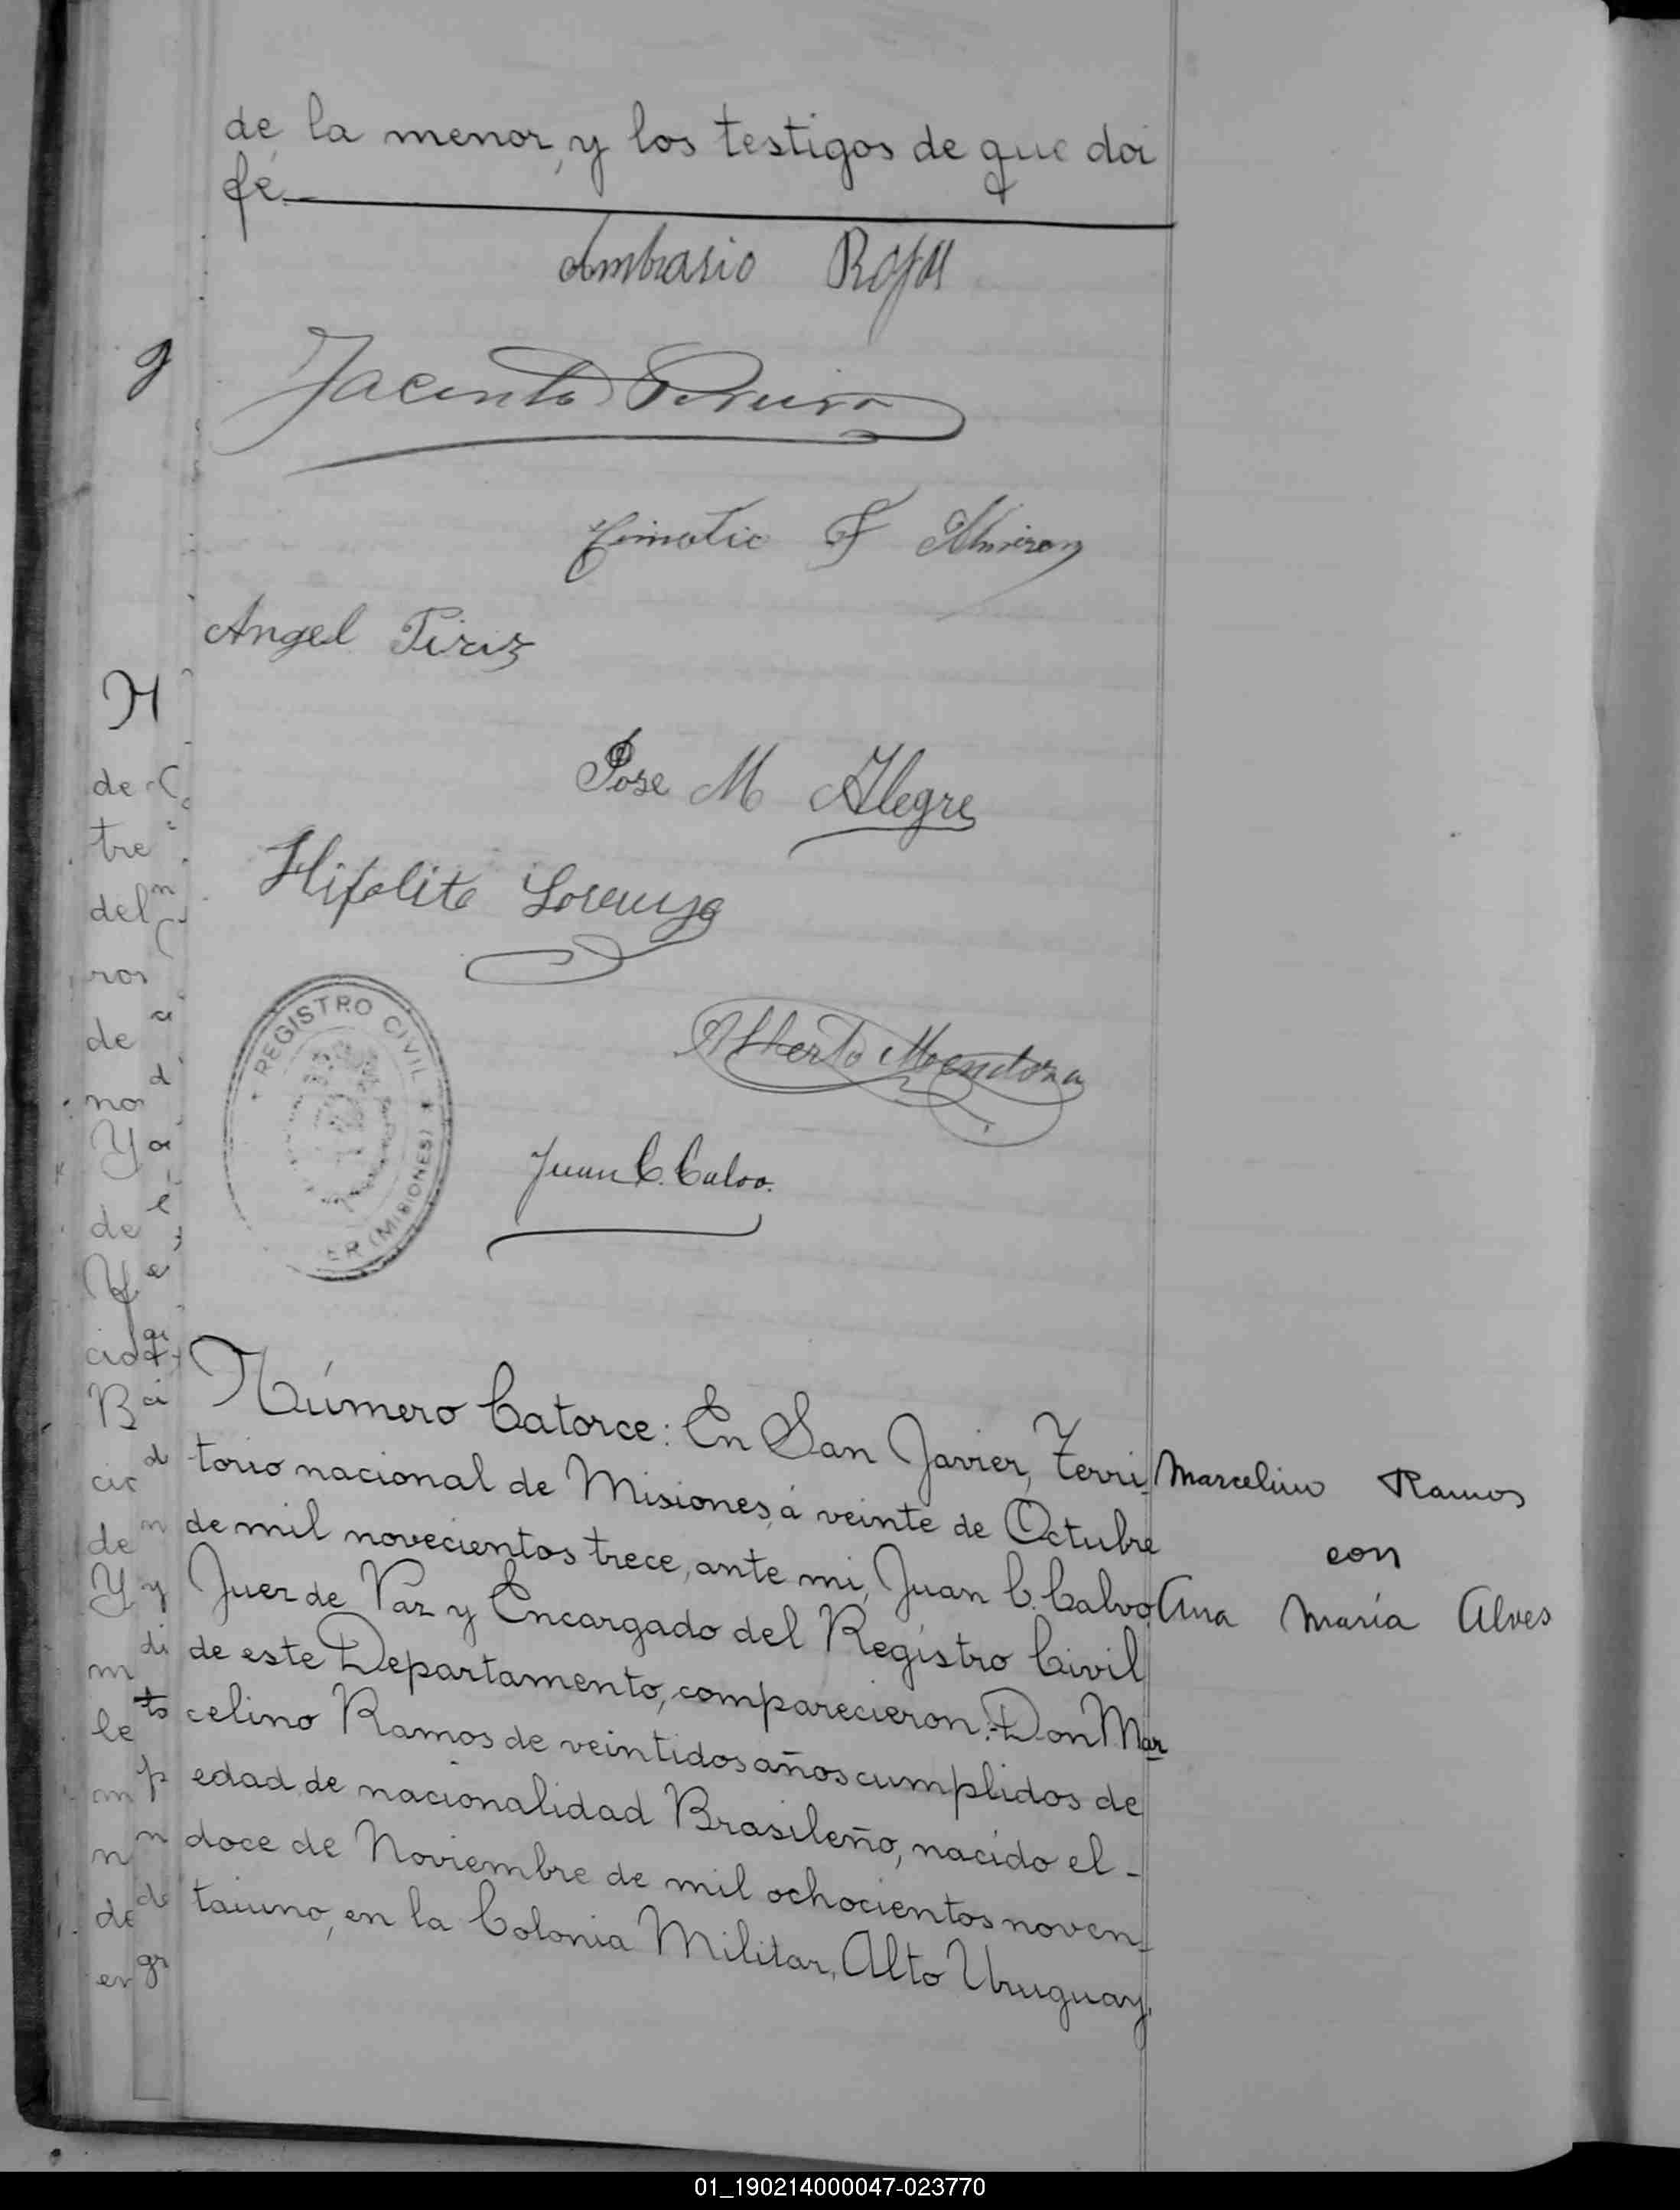 de la menor, y los testigos de que doi
fé.
Ambrasio Rojas
Jacinto Pereira
Timotio F Almiron
Angel Piriz
Jose M Alegre
Hipolito Lorenzo
Alberto Mendoza
REGISTRO CIVIL
ER (MISIONES)
Juan C. Calvo.
Número Catorce: En San Javier, Terri-
torio nacional de Misiones, á veinte de Octubre
de mil novecientos trece, ante mi, Juan C. Calvo
Juez de Paz y Encargado del Registro Civil
de este Departamento, comparecieron: Don Mar
celino Ramos de veintidos años cumplidos de
edad de nacionalidad Brasileño, nacido el -
doce de Noviembre de mil ochocientos noven-
taiuno, en la Colonia Militar, Alto Uruguay,
Marcelino Ramos
con
Ana María Alves
01_190214000047-023770